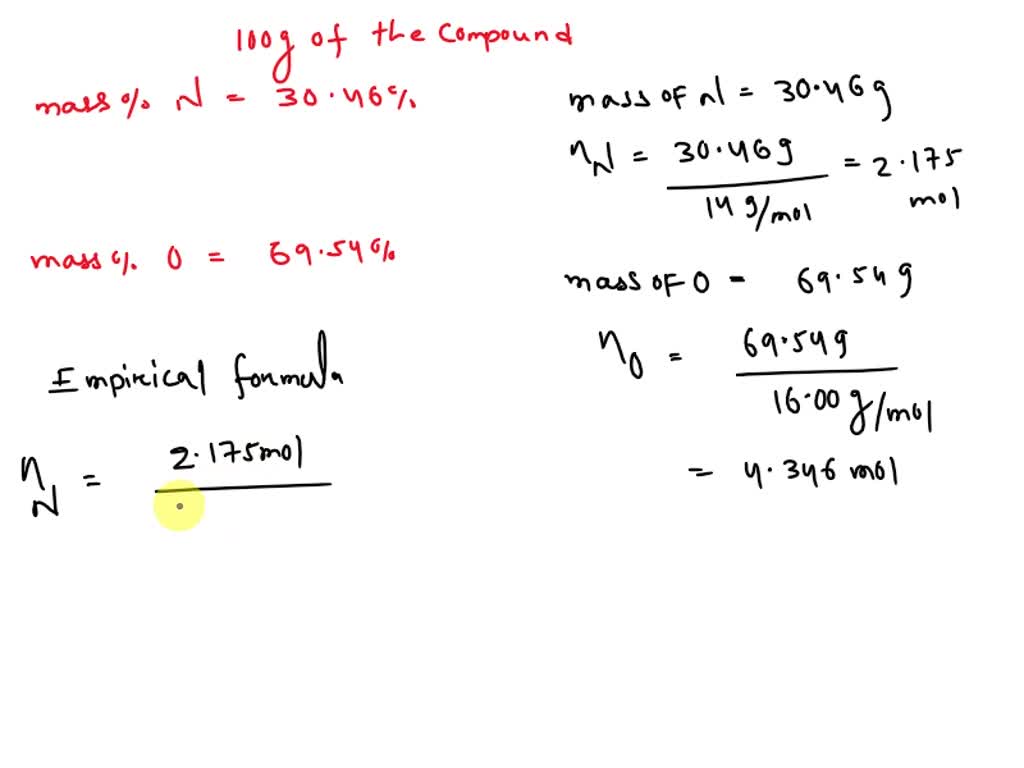 100g of the compound
mass % N = 30.46%
mass of N = 30.46g
nN = 30.46g / 14 g/mol = 2.175 mol
mass % O = 69.54%
mass of O = 69.54g
nO = 69.54g / 16.00 g/mol
= 4.346 mol
Empirical formula
nN = 2.175mol